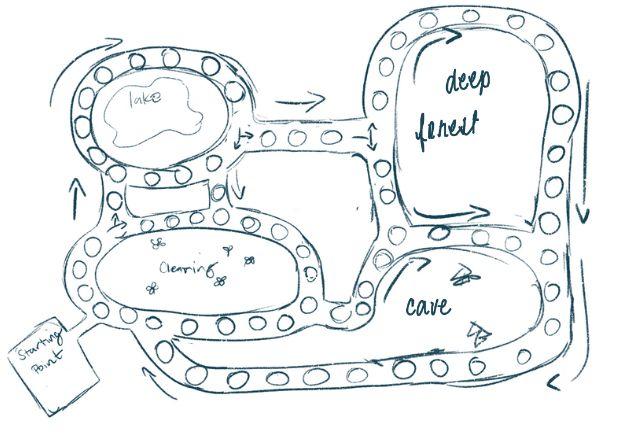 lake
deep
forest
Clearing
cave
Starting
Point